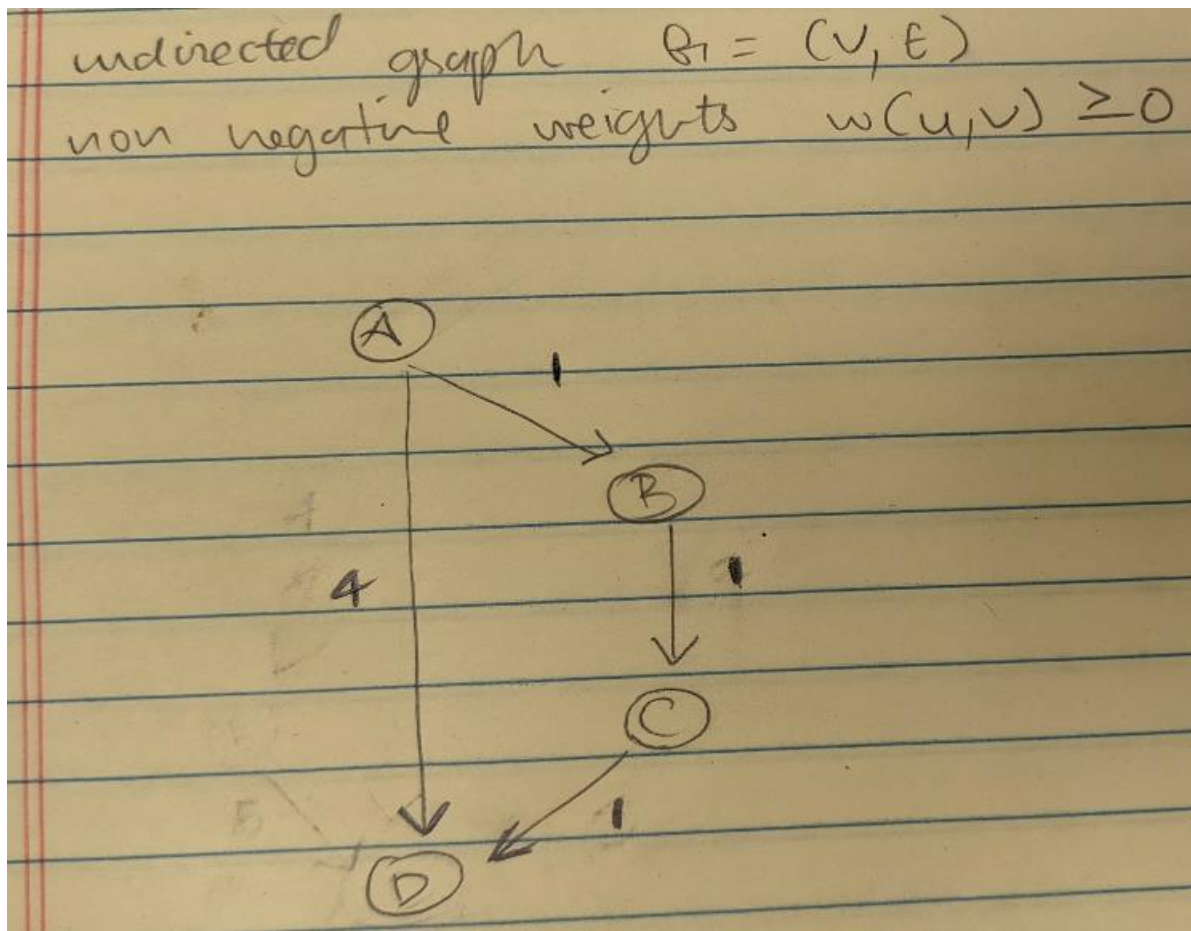 undirected graph G = (V, E)
non negative weights w(u,v) ≥0
A
1
B
4
1
C
1
D